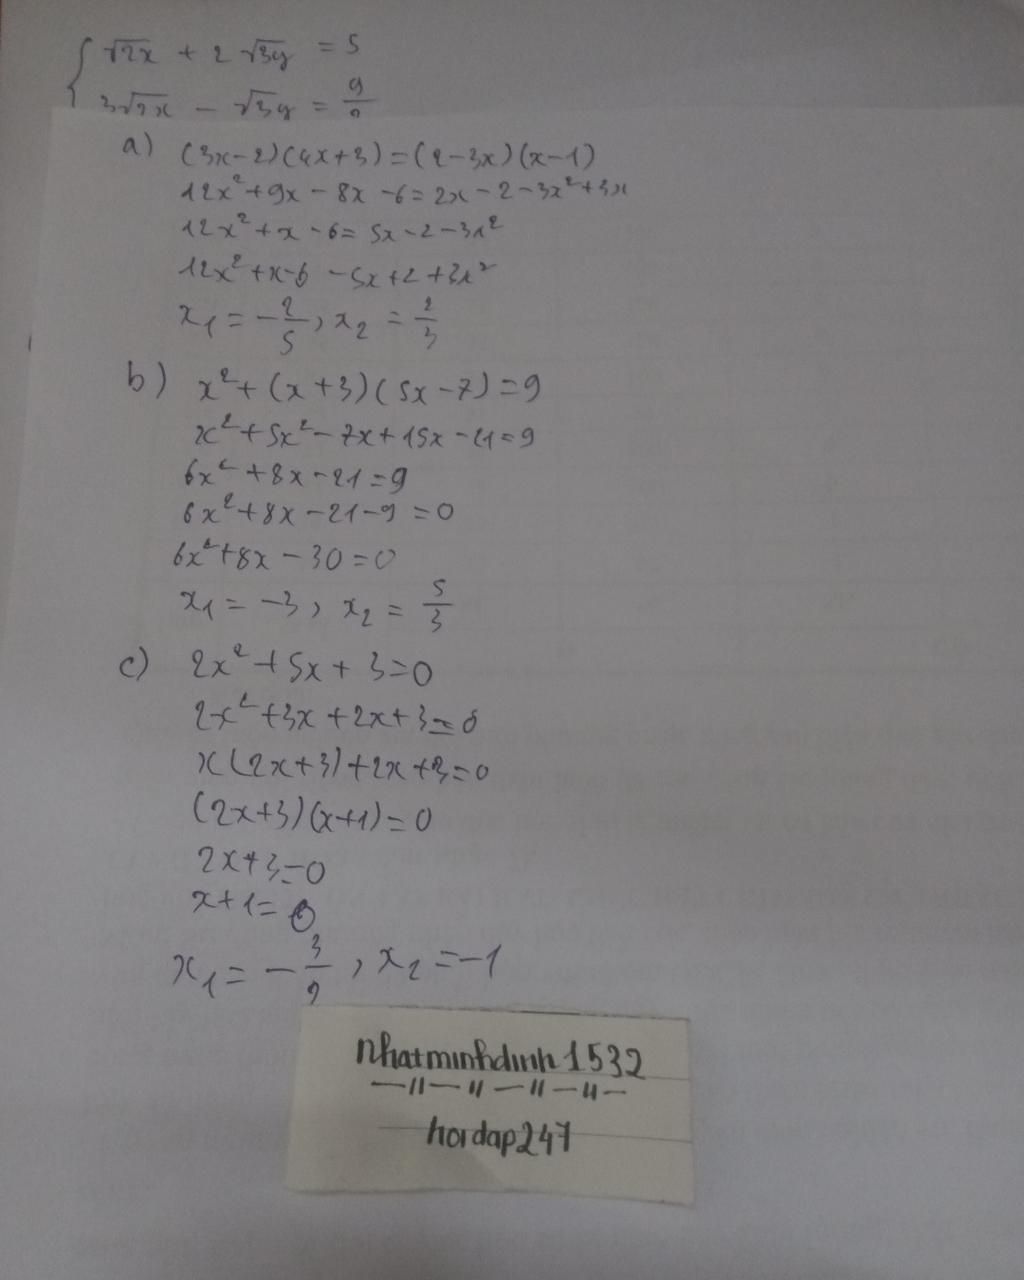 { √2x + 2√3y = 5
3√2x - √3y = 9/2
a) (3x-2)(4x+3)=(2-3x)(x-1)
12x²+9x-8x-6=2x-2-3x²+3x
12x²+x-6=5x-2-3x²
12x²+x-6-5x+2+3x²
x₁=-2/5, x₂=2/3
b) x²+(x+3)(5x-7)=9
x²+5x²-7x+15x-21=9
6x²+8x-21=9
6x²+8x-21-9=0
6x²+8x-30=0
x₁=-3, x₂=5/3
c) 2x²+5x+3=0
2x²+3x+2x+3=0
x(2x+3)+2x+3=0
(2x+3)(x+1)=0
2x+3=0
x+1=0
x₁=-3/2, x₂=-1
nhatminhdinh1532
—//—//—//—//—
hoidap247